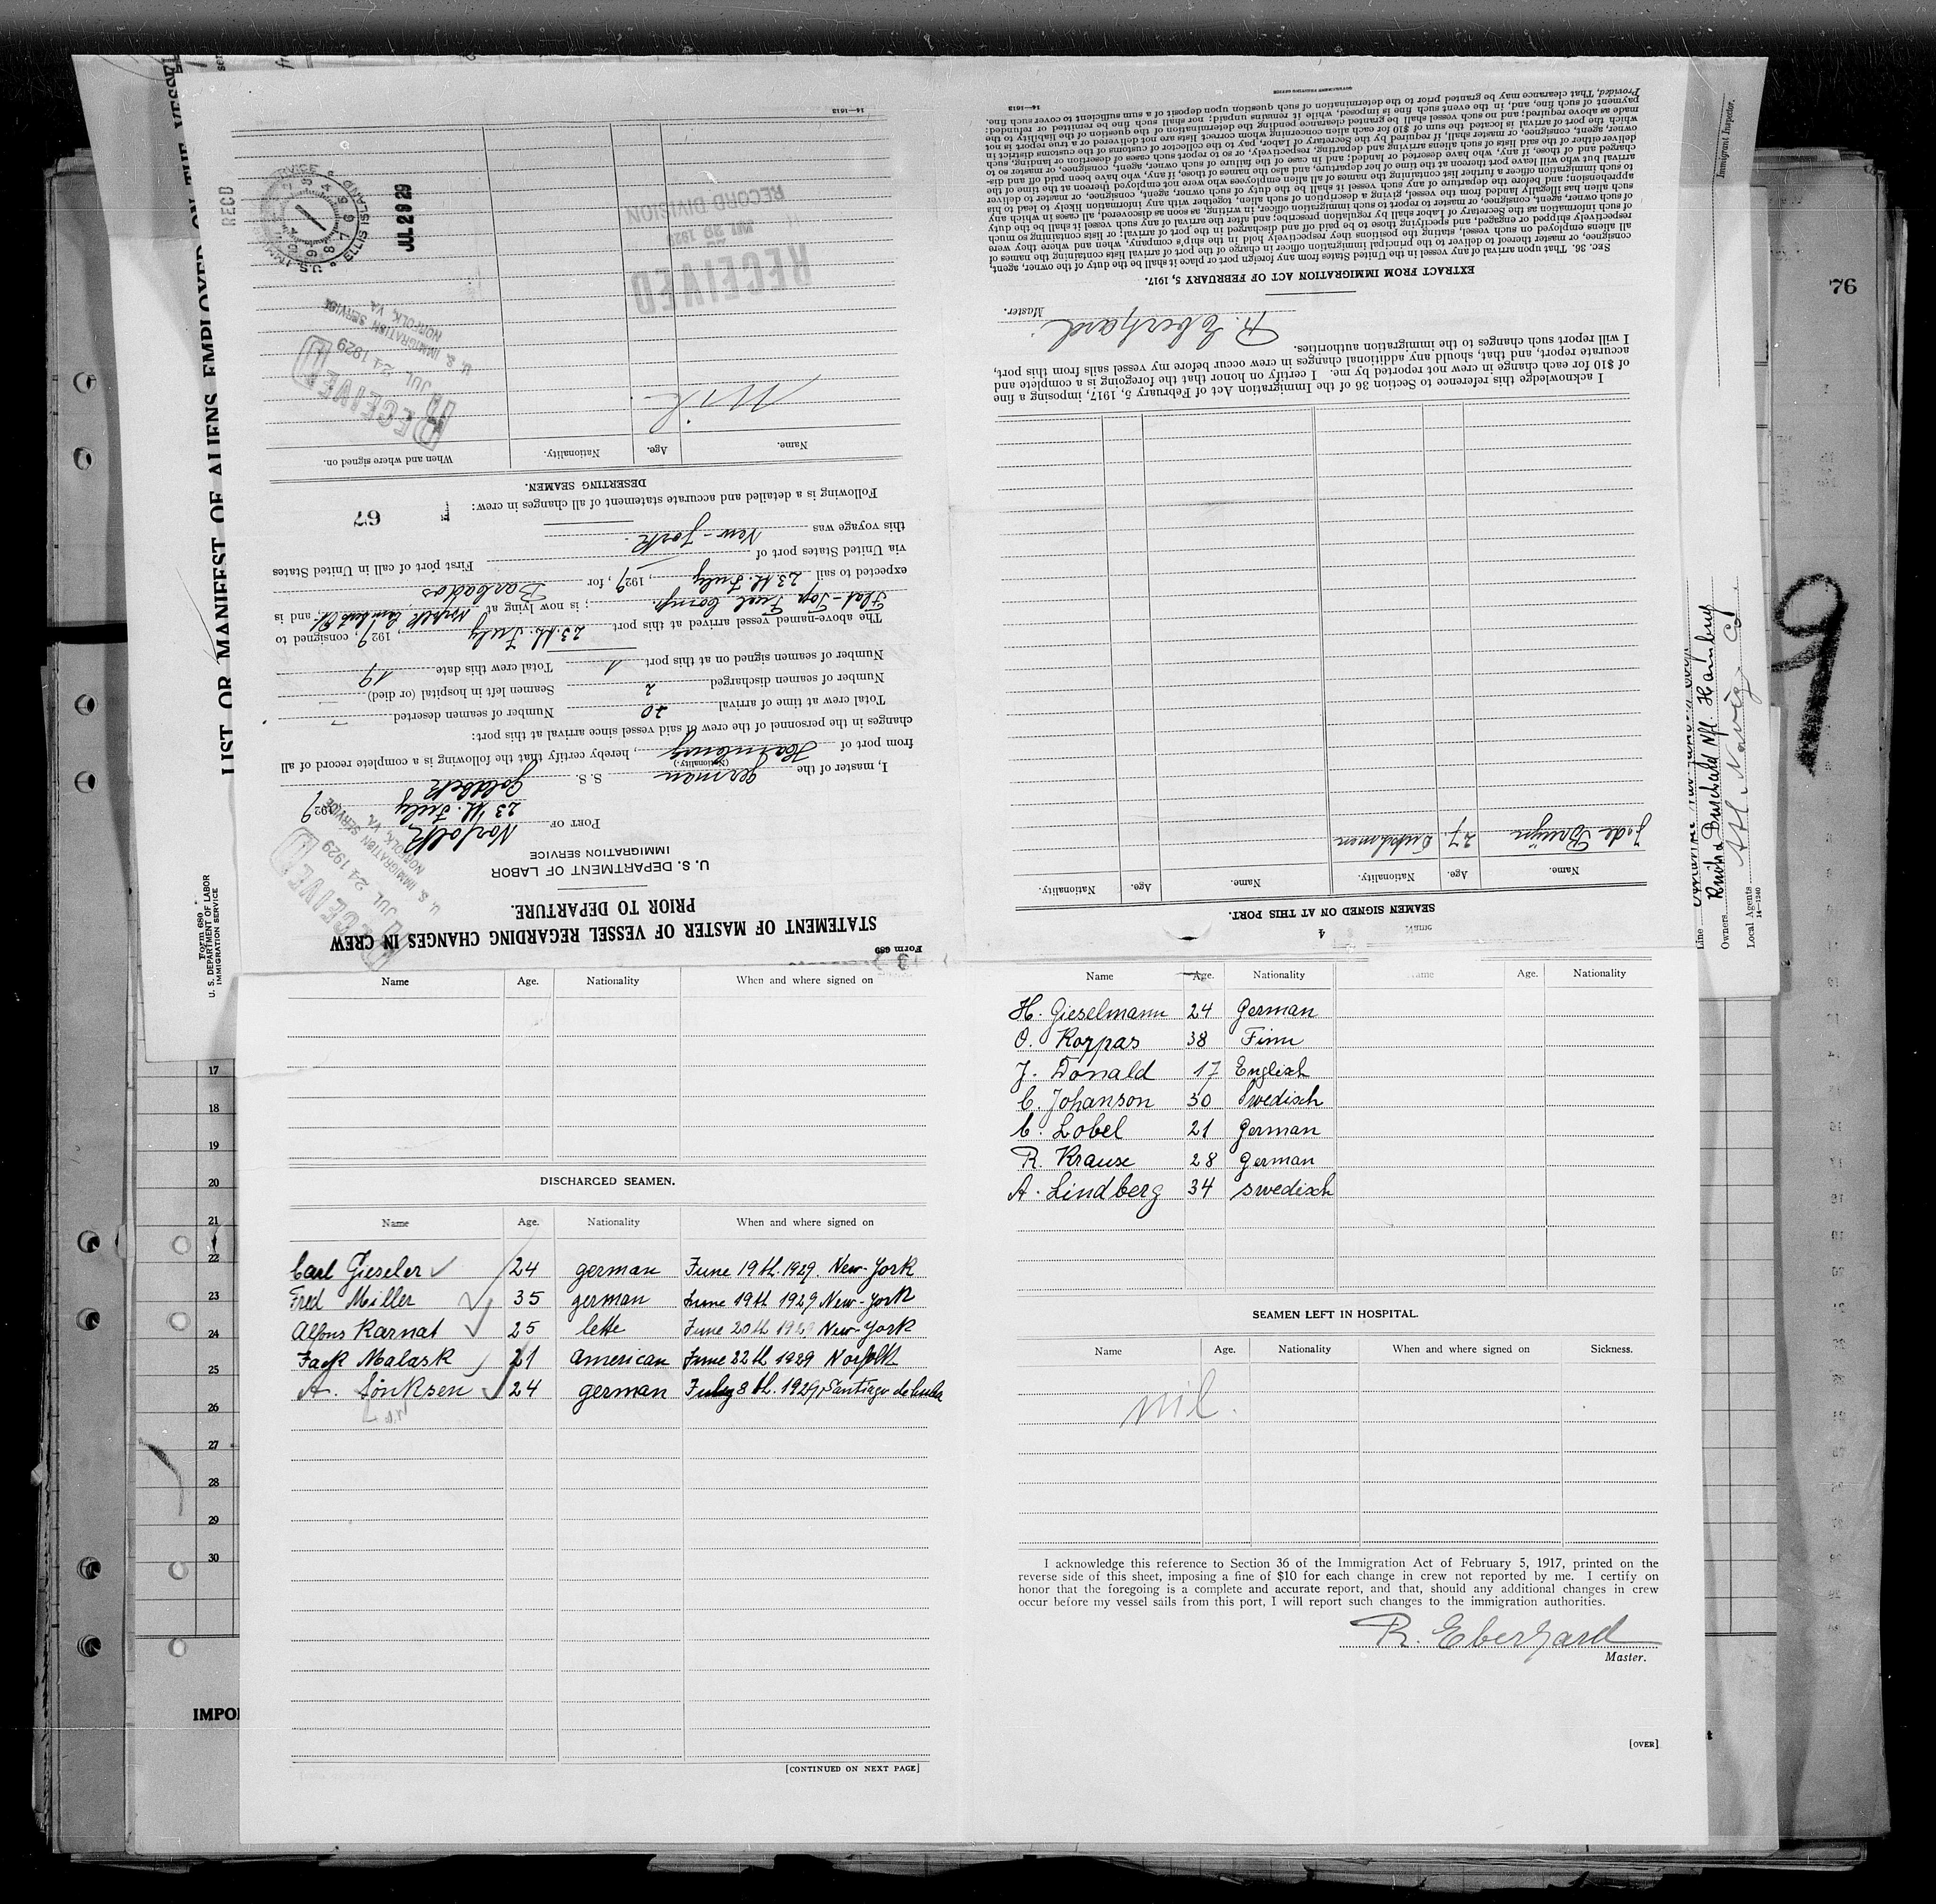 LIST OR MANIFEST OF ALIENS EMPLOYED ON THE VESSEL
Form 680
U. S. DEPARTMENT OF LABOR
IMMIGRATION SERVICE
Form 689
STATEMENT OF MASTER OF VESSEL REGARDING CHANGES IN CREW
PRIOR TO DEPARTURE.
U. S. DEPARTMENT OF LABOR
IMMIGRATION SERVICE
RECEIVED
JUL 24 1929
U. S. IMMIGRATION SERVICE
NORFOLK, VA.
PORT OF Norfolk
23 th. July 1929
I, master of the german S. S. Goldbek
(Nationality.)
from port of Hamburg, hereby certify that the following is a complete record of all
changes in the personnel of the crew of said vessel since arrival at this port:
Total crew at time of arrival 20 Number of seamen deserted
Number of seamen discharged 2 Seamen left in hospital (or died)
Number of seamen signed on at this port 1 Total crew this date 19
The above-named vessel arrived at this port 23.th. July, 1929 consigned to
Flat-Top Fuel Comp. ; is now lying at Lambert Pt., and is
expected to sail 23 th. July, 1929, for Barbados
via United States port of First port of call in United States
this voyage was New-York.
Following is a detailed and accurate statement of all changes in crew:
67
DESERTING SEAMEN.
Name. Age. Nationality. When and where signed on.
Nil
RECEIVED
JUL 24 1929
U. S. IMMIGRATION SERVICE
NORFOLK, VA.
RECEIVED
RECORD DIVISION
RECD
JUL 29 29
ELLIS ISLAND
14—1613
SEAMEN SIGNED ON AT THIS PORT.
Name. Age. Nationality. Name. Age. Nationality.
J. de Bruijn 27
I acknowledge this reference to Section 36 of the Immigration Act of February 5, 1917, imposing a fine
of $10 for each change in crew not reported by me. I certify on honor that the foregoing is a complete and
accurate report, and that, should any additional changes in crew occur before my vessel sails from this port,
I will report such changes to the immigration authorities.
R. Eberhard
Master.
EXTRACT FROM IMMIGRATION ACT OF FEBRUARY 5, 1917.
SEC. 36. That upon arrival of any vessel in the United States from any foreign port or place it shall be the duty of the owner, agent,
consignee, or master thereof to deliver to the principal immigration officer in charge of the port of arrival lists containing the names of
all aliens employed on such vessel, stating the positions they respectively hold in the ship's company, when and where they were
respectively shipped or engaged, and specifying those to be paid off and discharged in the port of arrival; or lists containing so much
of such information as the Secretary of Labor shall by regulation prescribe; and after the arrival of any such vessel it shall be the duty
of such owner, agent, consignee, or master to report to such immigration officer, in writing, as soon as discovered, all cases in which any
such alien has illegally landed from the vessel, giving a description of such alien, together with any information likely to lead to his
apprehension; and before the departure of any such vessel it shall be the duty of such owner, agent, consignee, or master to deliver
to such immigration officer a further list containing the names of all alien employees who were not employed thereon at the time of the
arrival but who will leave port thereon at the time of her departure, and also the names of those, if any, who have been paid off and dis-
charged and of those, if any, who have deserted or landed; and in case of the failure of such owner, agent, consignee, or master so to
deliver either of the said lists of such aliens arriving and departing, respectively, or so to report such cases of desertion or landing, such
owner, agent, consignee, or master, shall, if required by the Secretary of Labor, pay to the collector of customs of the customs district in
which the port of arrival is located the sum of $10 for each alien concerning whom correct lists are not delivered or a true report is not
made as above required; and no such vessel shall be granted clearance pending the determination of the question of the liability to the
payment of such fine, and, in the event such fine is imposed, while it remains unpaid; nor shall such fine be remitted or refunded:
Provided, That clearance may be granted prior to the determination of such question upon deposit of a sum sufficient to cover such fine.
14—1613
Immigrant Inspector.
Line
Owners
Local Agents Atl. Navig. Co.
14—1240
76
9
Name Age. Nationality When and where signed on
DISCHARGED SEAMEN.
Name Age. Nationality When and where signed on
Carl Gieseler 24 german June 19th. 1929. New-York
Fred Miller 35 german June 19th 1929 New-York
Alfons Karnat 25 lette June 20th 1929 New-York
Jack Malask 21 american June 22th 1929 Norfolk
A. Sönksen 24 german July 8 th. 1929, Santiago de Cuba
[CONTINUED ON NEXT PAGE]
Name Age. Nationality Name Age. Nationality
H. Gieselmann 24 German
O. Korpas 38 Finn
J. Donald 17 Englisch
C. Johanson 30 Swedisch
C. Lobel 21 German
R. Krause 28 German
A. Lindberg 34 swedisch
SEAMEN LEFT IN HOSPITAL.
Name Age. Nationality When and where signed on Sickness.
nil.
I acknowledge this reference to Section 36 of the Immigration Act of February 5, 1917, printed on the
reverse side of this sheet, imposing a fine of $10 for each change in crew not reported by me. I certify on
honor that the foregoing is a complete and accurate report, and that, should any additional changes in crew
occur before my vessel sails from this port, I will report such changes to the immigration authorities.
R. Eberhard
Master.
[OVER]
17
18
19
20
21
22
23
24
25
26
27
28
29
30
IMPO